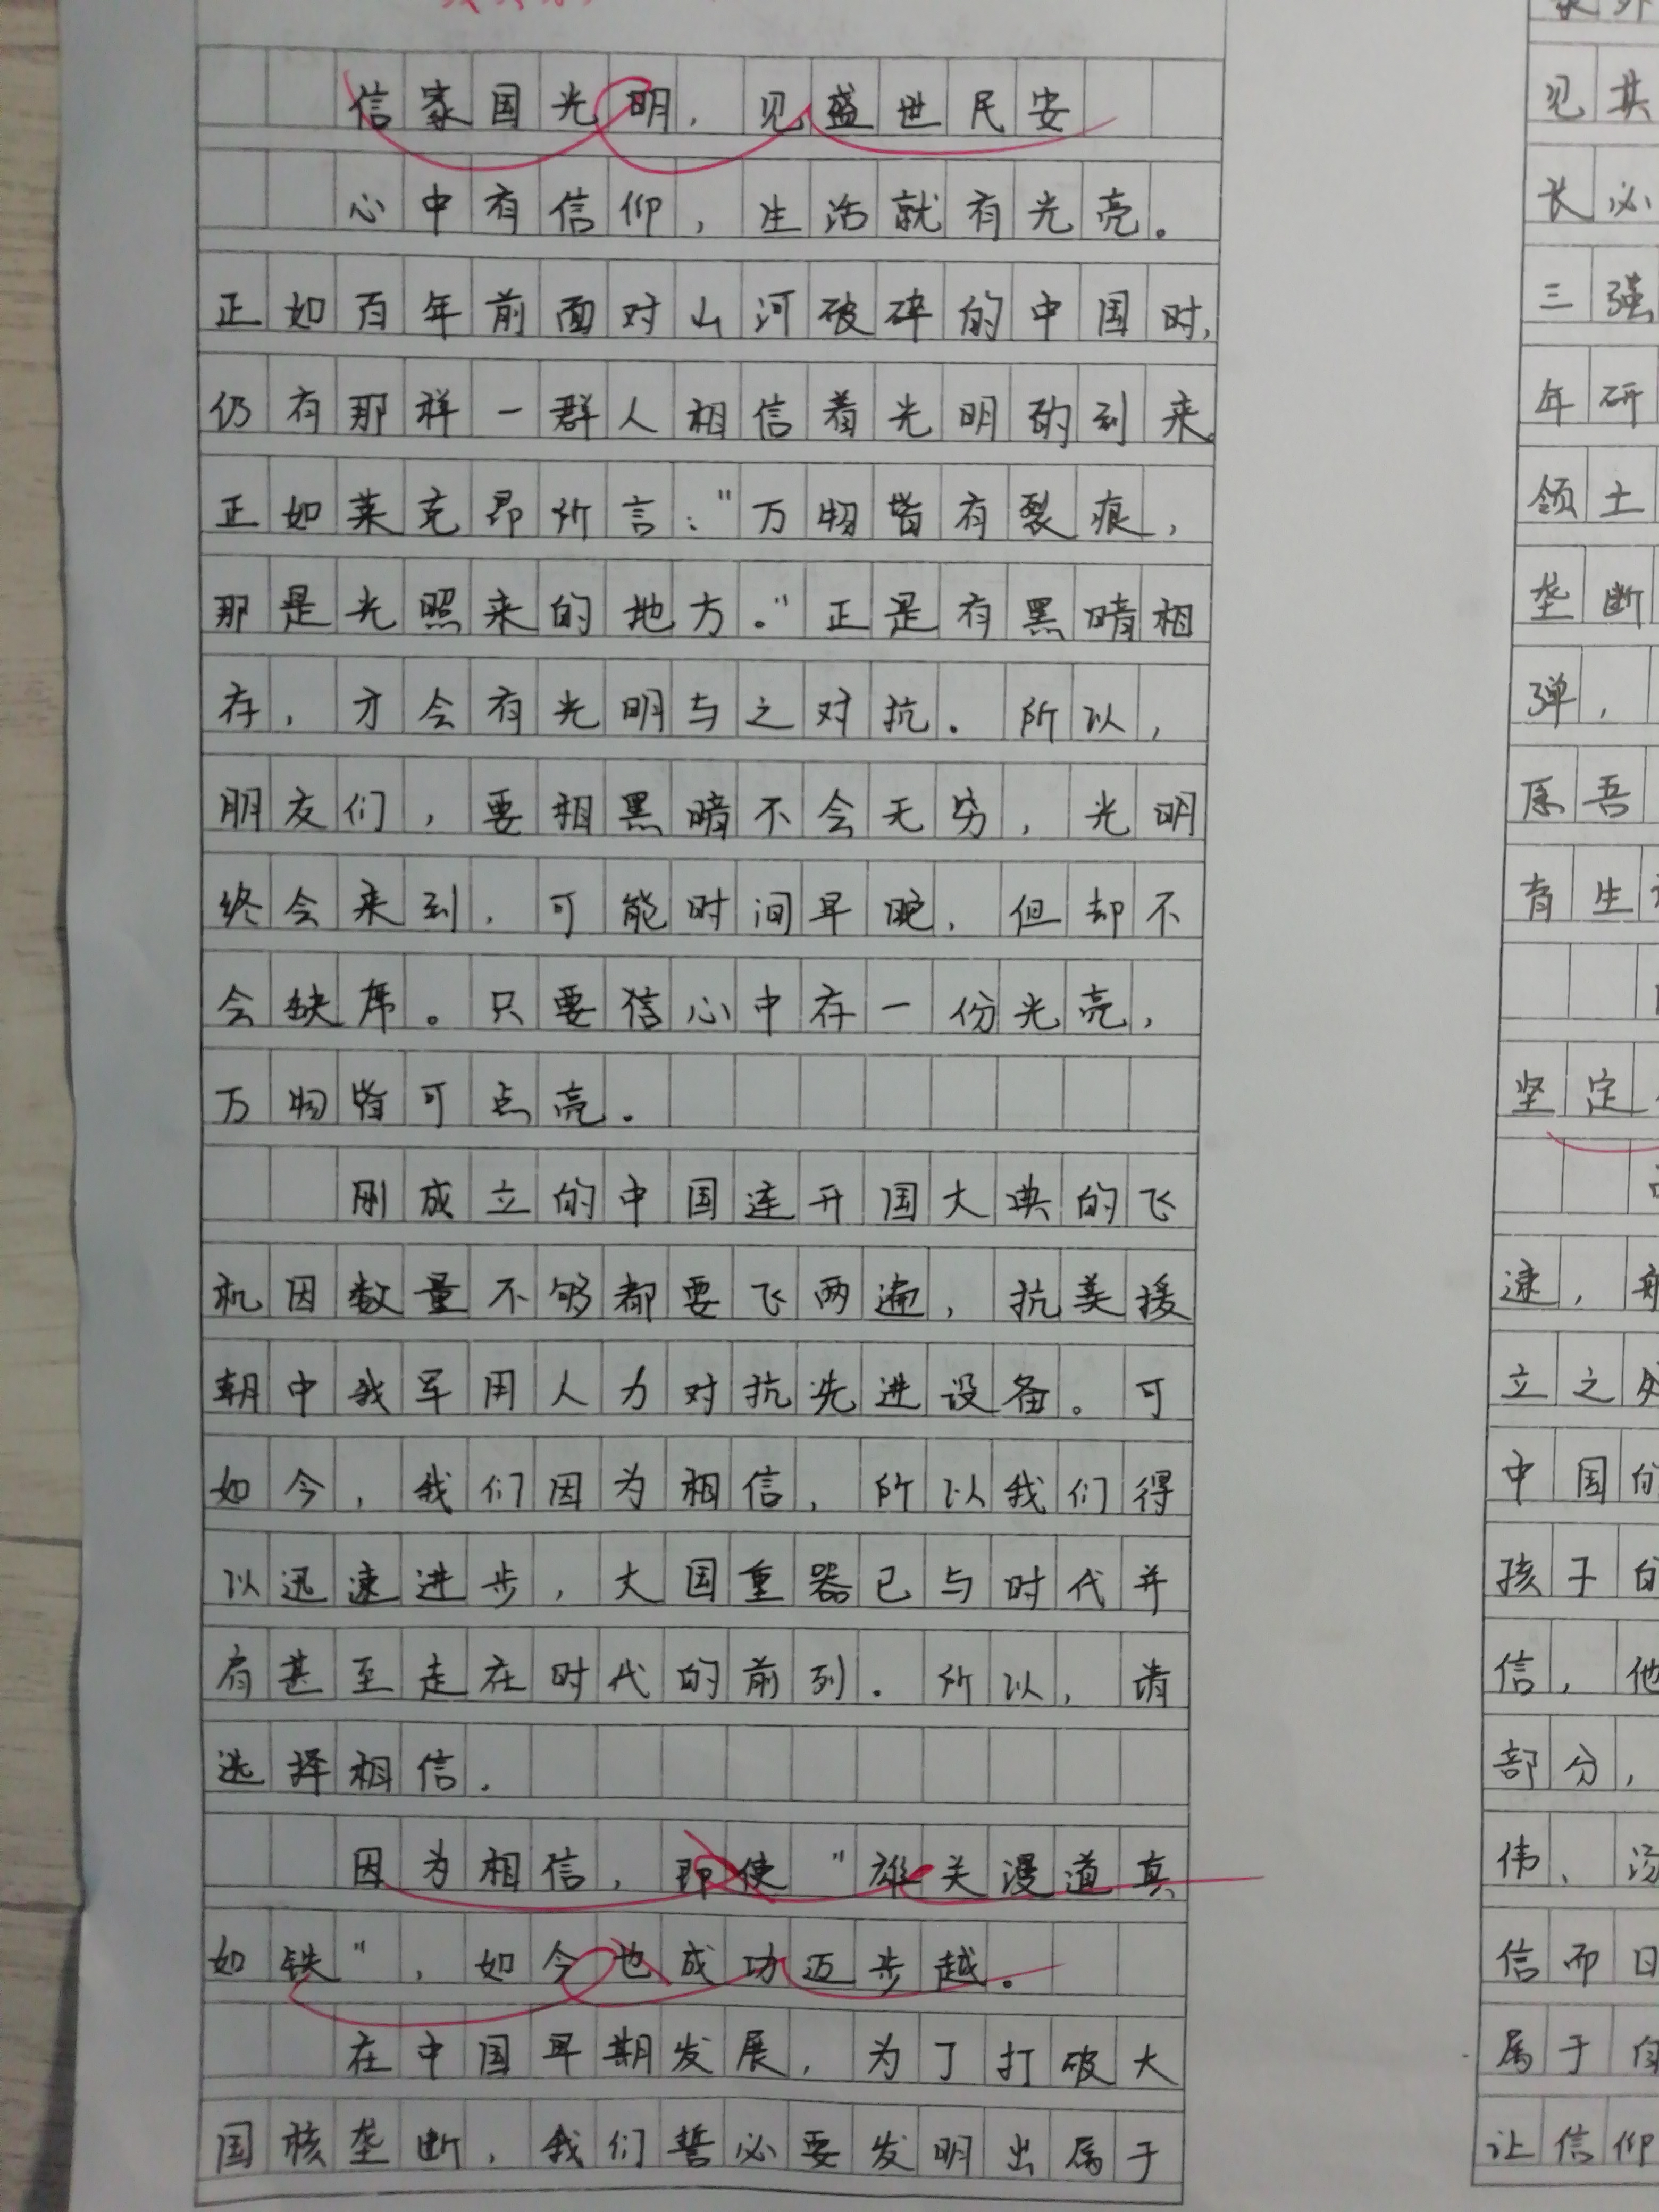 信家国光明，见盛世民安
心中有信仰，生活就有光亮。
正如百年前面对山河破碎的中国时，
仍有那样一群人相信着光明的到来。
正如莱克昂所言："万物皆有裂痕，
那是光照来的地方。"正是有黑暗相
存，才会有光明与之对抗。所以，
朋友们，要相黑暗不会无穷，光明
终会来到，可能时间早晚，但却不
会缺席。只要信心中存一份光亮，
万物皆可点亮。
刚成立的中国连开国大典的飞
机因数量不够都要飞两遍，抗美援
朝中我军用人力对抗先进设备。可
如今，我们因为相信，所以我们得
以迅速进步，大国重器已与时代并
肩甚至走在时代的前列。所以，请
选择相信。
因为相信，即使"雄关漫道真
如铁"，如今也成功迈步越。
在中国早期发展，为了打破大
国核垄断，我们誓必要发明出属于
见其
长必
三强
年研
领土
垄断
弹，
原吾
有生
坚定
速，
立之
中国
孩子的
信，他
部分，
伟、
信而日
属于自
让信仰